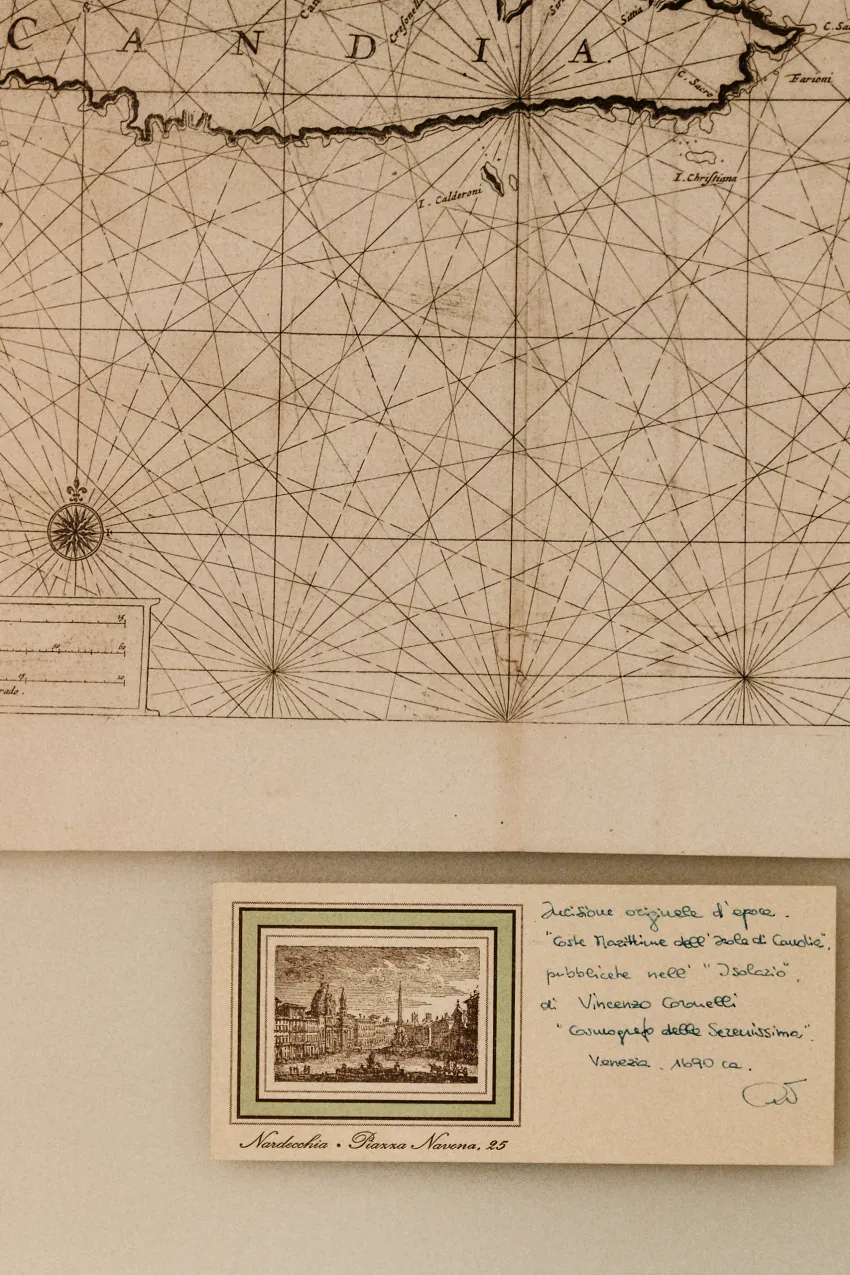 C A N D I A.
Sittia
C. Sacro
Farioni
I. Calderoni
I. Christiana
15
20
60
15
20
Incisione originale d'epoca.
"Coste Marittime dell'Isola di Candia",
pubblicate nell' "Isolario",
di Vincenzo Coronelli
"Cosmografo della Serenissima".
Venezia. 1690 ca.
Nardecchia • Piazza Navona, 25